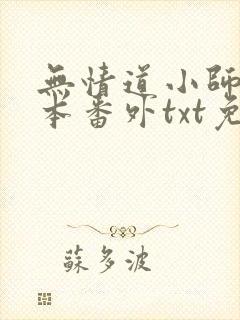 無情道小師
本番外txt免
蘇多波